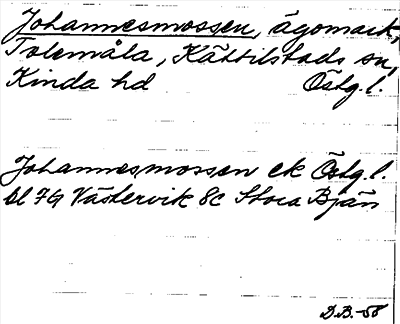 Johannesmossen, ägomark,
Tolemåla, Kättilstads sn,
Kinda hd Östg.l.
Johannesmossen ek Östg.l.
bl 7G Västervik 8c Stora Bjän
D.B.-58